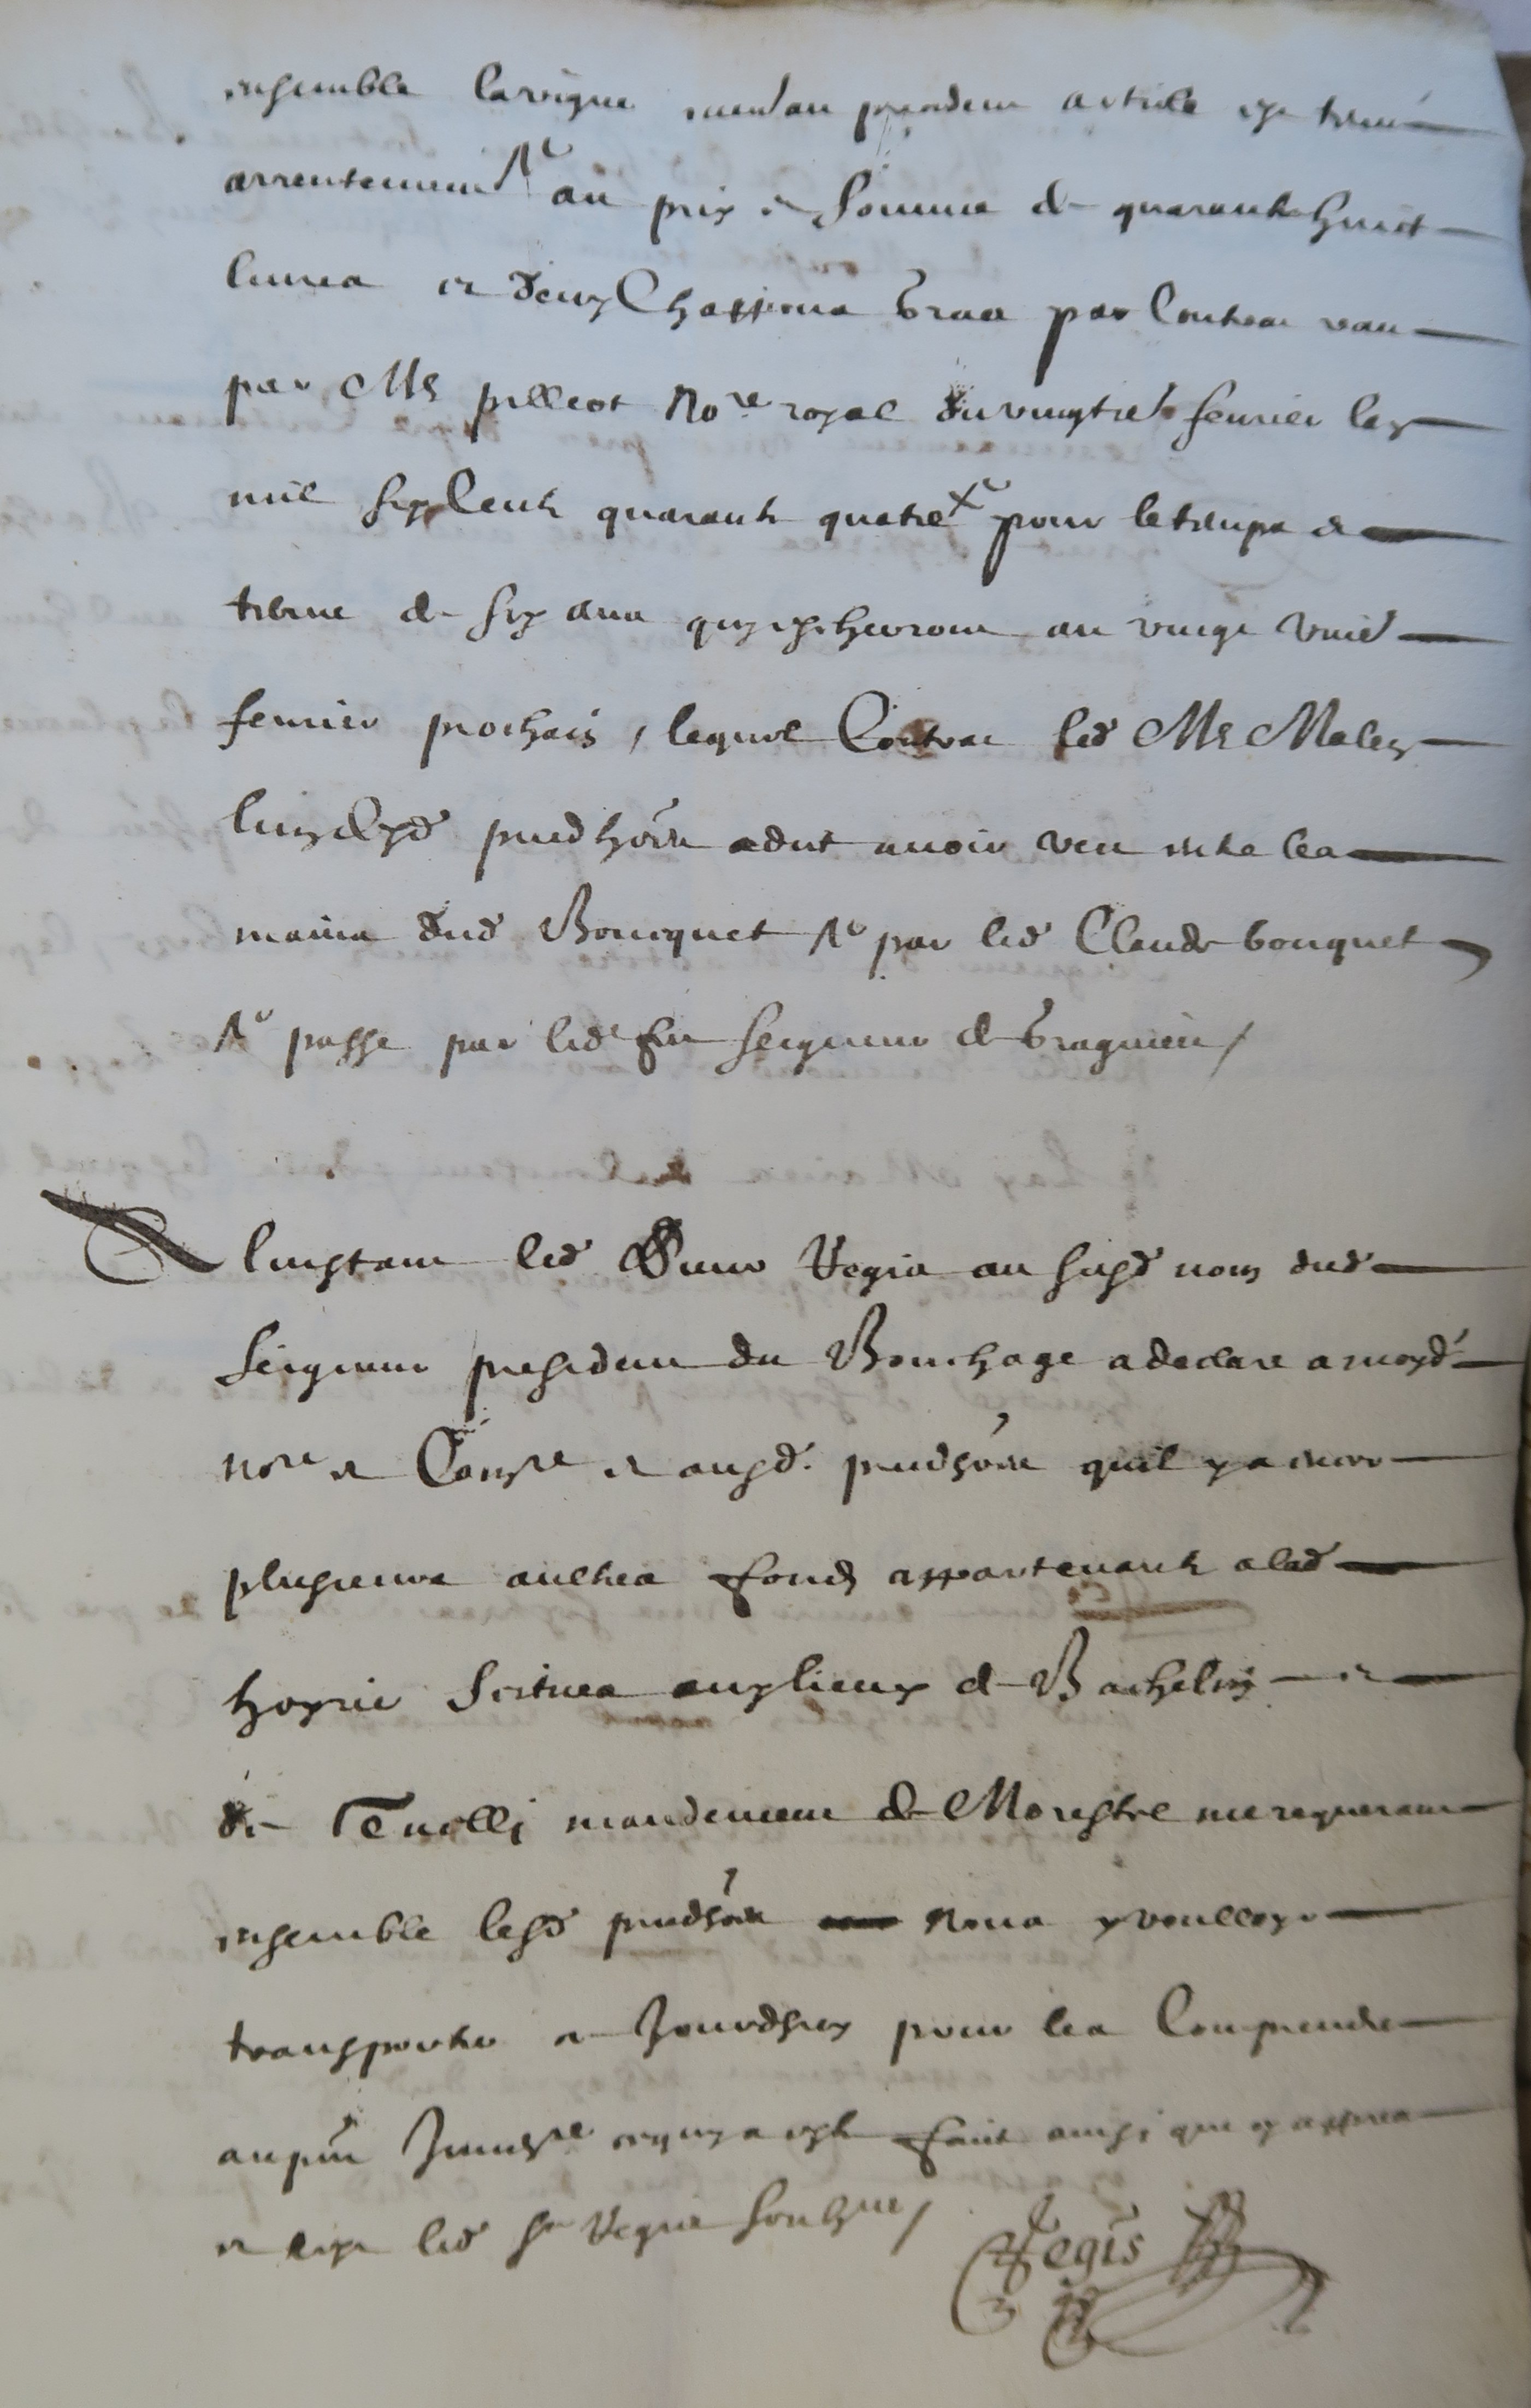 ensemble la vigne au precedent article est tenu
arrentement au prix et somme de quarante huict
livres et deux Chappons gras par Contrac receu
par Me pilleot Nore royal du vingtie fevrier
mil six Cents quarante quatre pour le temps et
terme de six ans quy escheuront au vingt unie
fevrier prochain, lequel Contrac led Me
prudhome a dict avoir veu entre les
mains dud Bouquet par led Claude bouquet
passe par led feu seigneur de bragnieu /
A linstant led Sieur Regis au susd nom dud
Seigneur president du Bouchage a declare a moyd
nore et Comre et ausd. prudhome quil y a encor
plusieurs aultres fonds appartenants a lad
hoyrie scitues aux lieux de Bachelin et
de mandement de Morestel me requerant
ensemble lesd prudhome Nous y voulloyr
transporter et pour les Comprendre
au pnt Inventre ce quy a este faict ainsi que cy appres
et led sr Regis soubzne /
Regis